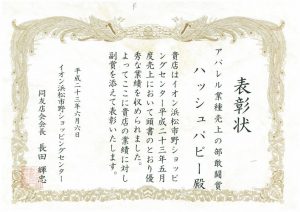 表彰状
アパレル業種売上の部敢闘賞
ハッシュパピー殿
貴店はイオン浜松市野ショッピ
ングセンター平成二十三年五月
度売上において頭書のとおり優
秀な業績を収められました。
よってここに貴店の業績に対し
副賞を添えて表彰いたします。
平成二十三年六月六日
イオン浜松市野ショッピングセンター
同友店会会長 長田 輝忠